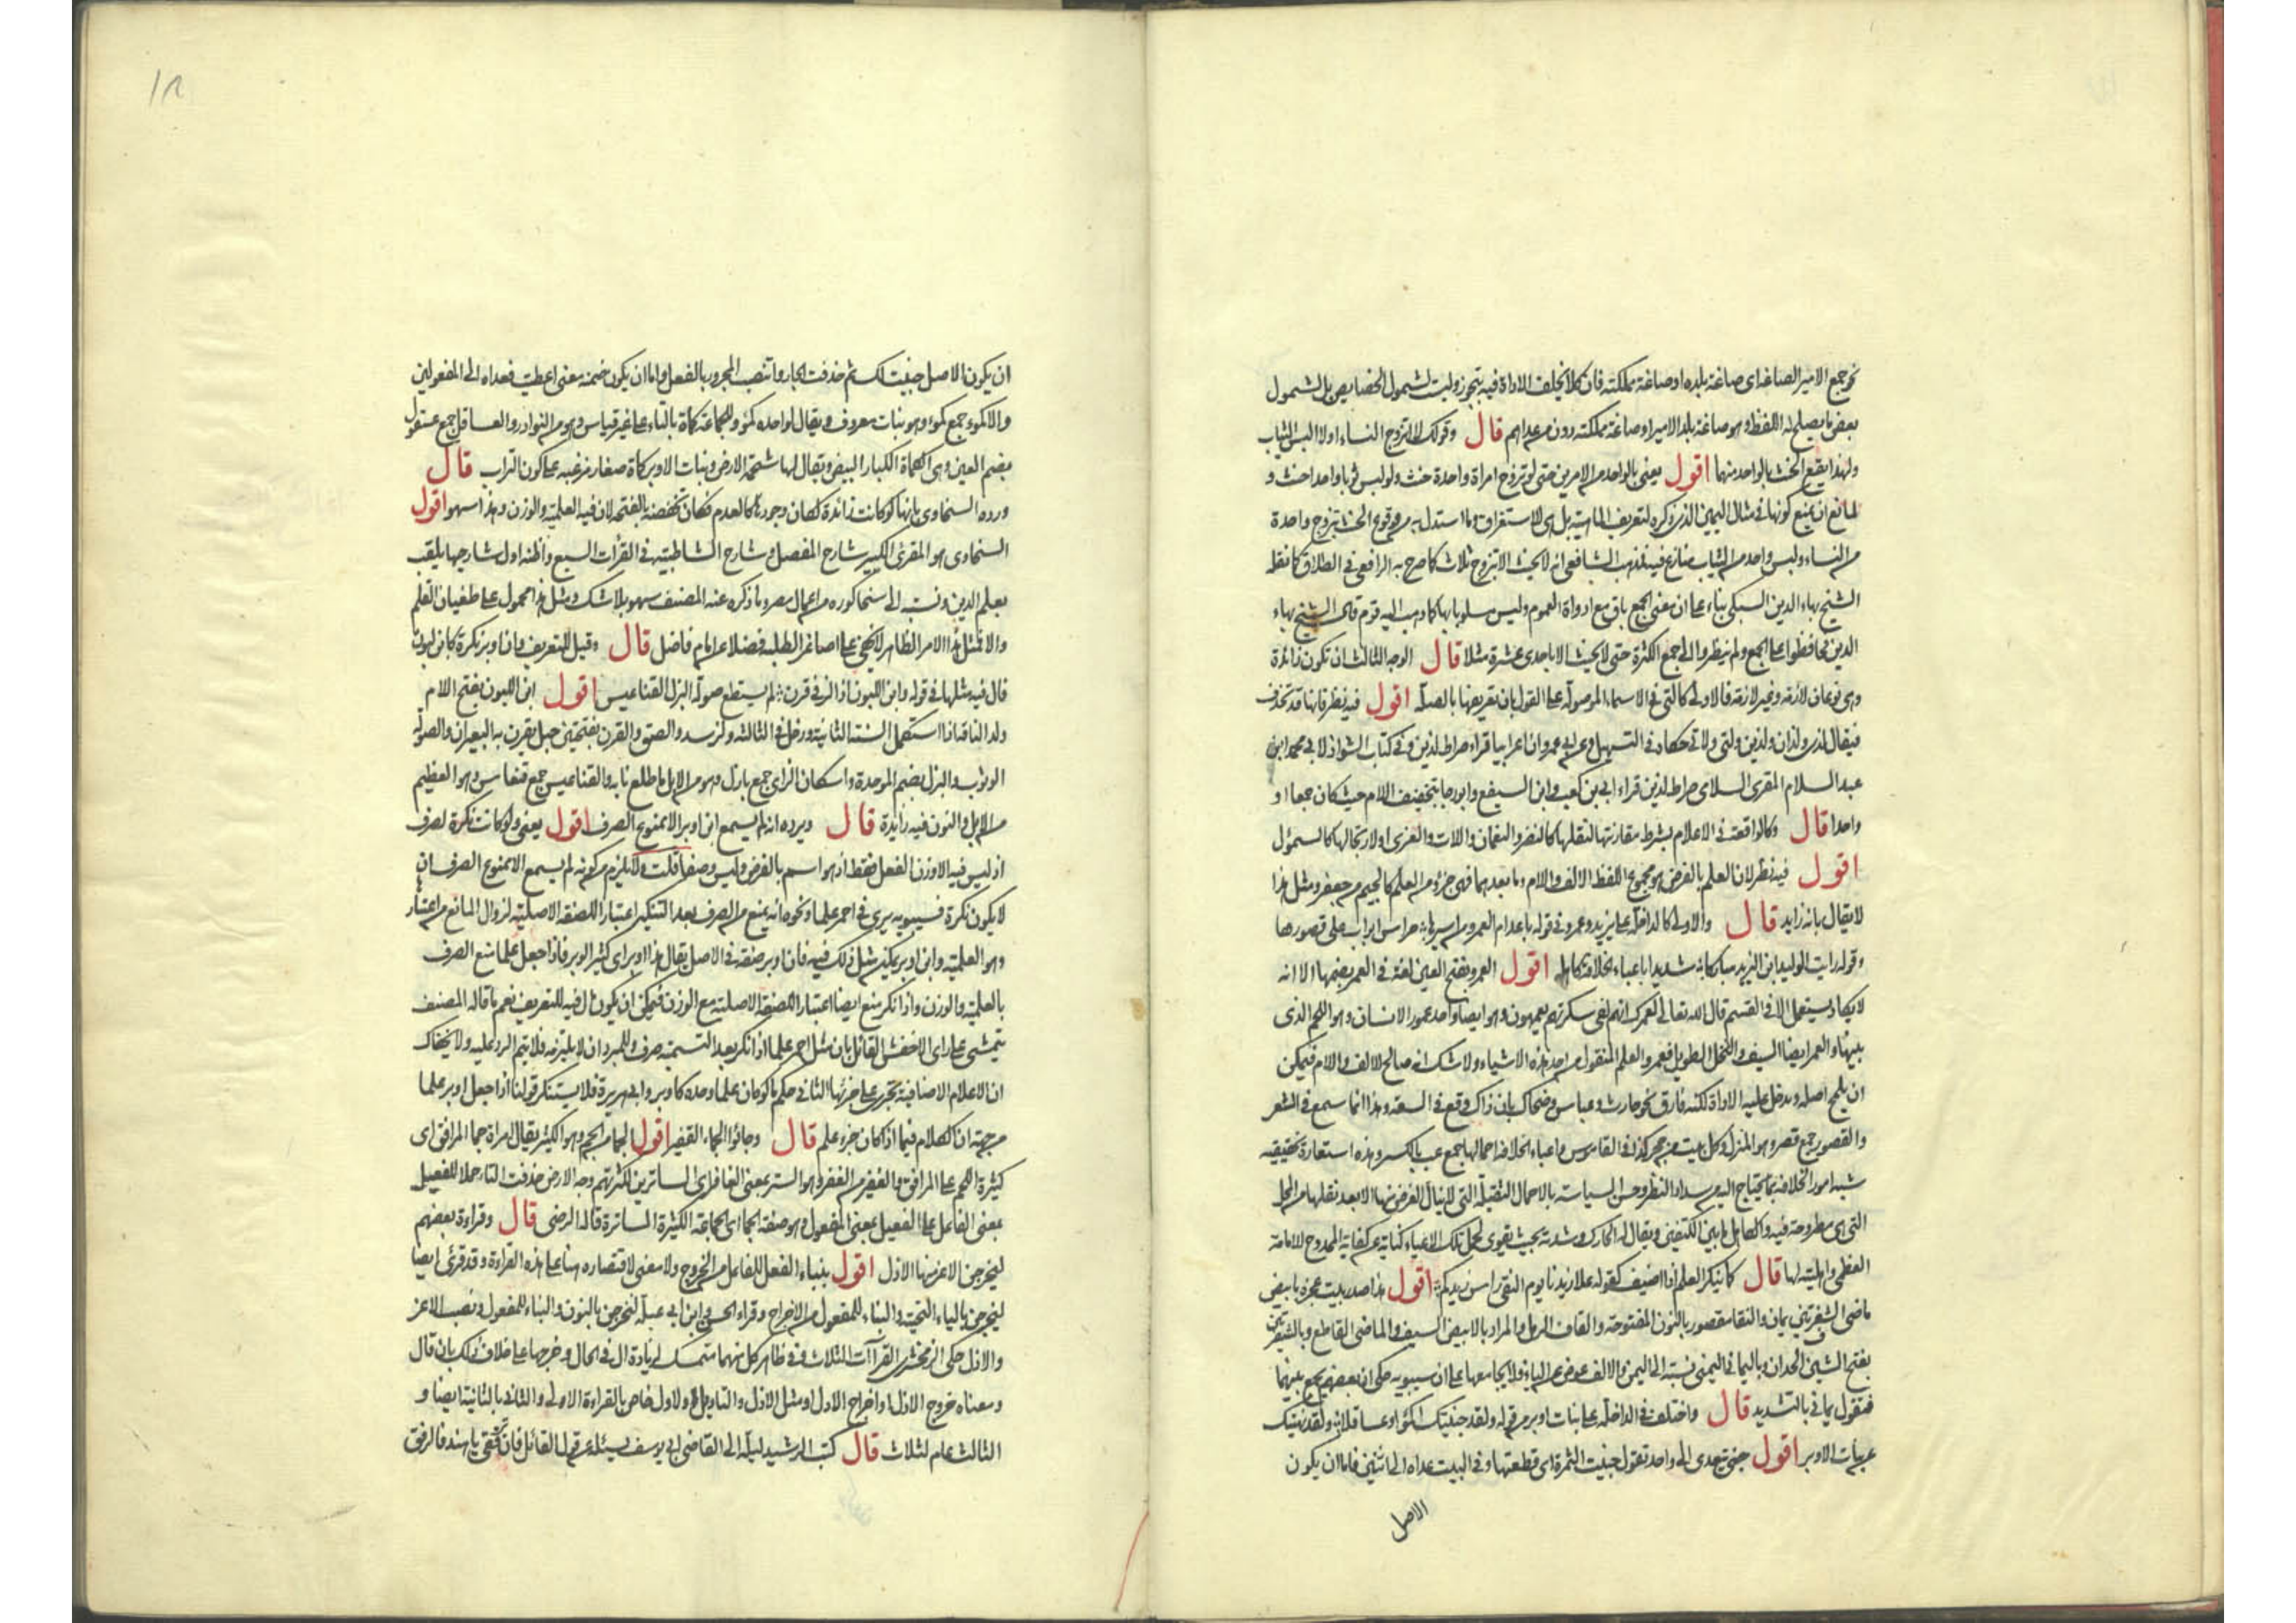 نحو جمع الامير الصاغة اى صاغة بلده او صاغة مملكته فان كلا يخلف الاداة فيه بتجوز وليست لشمول الخصايص بل لشمول
بعض ما يصلح له اللفظ وهو صاغة بلد الامير او صاغة مملكته دون من عداهم قال وقولك لا اتزوج النساء او لا البس الثياب
ولهذا يقع الحنث بالواحد منهما اقول يعنى بالواحد من الامرين حتى لو تزوج امراة واحدة حنث ولو لبس ثوبا واحدا حنث و
لمانع ان يمنع كونها فى مثال اليمين الذى ذكره لتعريف الماهية بل هى للاستغراق وما استدل به من وقوع الحنث بتزوج واحدة
من النساء ولبس واحد من الثياب منازع فيه فمذهب الشافعى انه لا يحنث الا بتزوج ثلاث كما صرح به الرافعى فى الطلاق كما نقله
الشيخ بهاء الدين السبكى بناء على ان معنى الجمع باق مع ادواة العموم وليس مسلوبا بها كما ذهب اليه قوم قال الشيخ بهاء
الدين فحافظوا على الجمع ولم ينظروا الى جمع الكثرة حتى لا يحنث الا باحدى عشرة مثلا قال الوجه الثالث ان تكون زائدة
وهى نوعان لازمة وغير لازمة فالاولى كالتى فى الاسماء الموصولة على القول بان تعريفها بالصلة اقول فيه نظر فانها قد تحذف
فيقال لذى ولذان ولذين ولتى ولاتى حكاه فى التسهيل وعن ابى عمرو ان اعرابيا قراء صراط لذين وفى كتاب الشواذ لابى محمد ابن
عبد السلام المقرى السلامى صراط لذين قراء ابى بن كعب وابن السميفع وابو رجا بتخفيف اللام حيث كان جمعا او
واحدا قال وكالواقعة فى الاعلام بشرط مقارنتها لنقلها كالنضر والنعمان واللات والعزى او لارتجالها كالسموأل
اقول فيه نظر لان العلم بالفرض هو مجموع اللفظ الالف واللام وما بعدهما فهى جزؤ من العلم كالجيم من جعفر ومثل هذا
لا يقال بانه زايد قال والاولى كالداخلة على يزيد وعمرو فى قوله باعدام العمرو من اسيرها حراس ابواب على قصورها
وقوله رايت الوليد ابن اليزيد مباركا شديدا باعباء الخلافة كاهله اقول العمرو بفتح العين لغة فى العمر بضمها الا انه
لا يكاد يستعمل الا فى القسم قال الله تعالى لعمرك انهم لفى سكرتهم يعمهون وهو ايضا واحد عمور الاسنان وهو اللحم الذى
بينها والعمر ايضا الشنف والنخل الطويل فعمرو العلم المنقول من احد هذه الاشياء ولا شك انه صالح للالف واللام فيمكن
ان يلمح اصله ويدخل عليه الاداة لكنه فارق نحو حارث وعباس وضحاك بان ذاك وقع فى السعة وهذا انما سمع فى الشعر
والقصور جمع قصر وهو المنزل وكل بيت من حجر كذا فى القاموس واعباء الخلافة احمالها جمع عب بالكسر وهذه استعارة تحقيقية
شبه امور الخلافة مما يحتاج اليه من سداد النظر وحسن السياسة بالاحمال الثقيلة التى لا ينال الغرض منها الا بعد نقلها من المحل
التى هى مطروحة فيه والكاهل ما بين الكتفين ويقال له الحارك وشدته بحيث يقوى لحمل تلك الاعباء كناية عن كفاية الممدوح للامامة
العظمى واهليته لها قال كما ينكر العلم اذا اضيف كقوله علا زيدنا يوم النقى راس زيدكم اقول هذا صدر بيت عجزه بابيض
ماضى الشفرتين يمان والنقا مقصور بالنون المفتوحة والقاف الرمل والمراد بالابيض السيف والماضى القاطع وبالشفرتين
بفتح الشين الحدان وباليمانى اليمنى نسبة الى اليمن والالف عوض عن الياء فلا يجامعها على ان سيبويه حكى ان بعضهم يجمع بينهما
فنقول يمانى بالتشديد قال واختلف فى الداخلة على بنات اوبر من قوله ولقد جنيتك اكمؤا وعساقلا ولقد نهيتك
عن بنات الاوبر اقول جنى يتعدى الى واحد تقول جنيت الثمرة اى قطعتها وفى البيت عداه الى اثنين فاما ان يكون
الاصل
ان يكون الاصل جنيت لك ثم حذفت الجار وانتصب المجرور بالفعل واما ان يكون ضمنه معنى اعطيت فعداه الى المفعولين
والاكموء جمع كموء وهو نبات معروف ويقال لواحده كمؤ وللجماعة كماة بالتاء على غير قياس وهو من النوادر والعساقل جمع عسقول
بضم العين وهى الكماة الكبار البيض ويقال لها شحمة الارض وبنات الاوبر كماة صغار مزغبه على لون التراب قال
ورده السخاوى بانها لو كانت زائدة لكان وجودها كالعدم فكان تخفضه بالفتحة لان فيه العلمية والوزن وهذا سهو اقول
السخاوى هو المقرئ الكبير شارح المفصل وشارح الشاطبية فى القرأت السبع واظنه اول شارحيها يلقب
بعلم الدين ونسبته الى سخا كوره من اعمال مصر وما ذكره عنه المصنف سهو بلا شك ومثل هذا محمول على طغيان القلم
والا فمثل هذا الامر الظاهر لا يخفى على اصاغر الطلبه فضلا عن امام فاضل قال وقيل للتعريف وان ابن اوبر نكرة كابن لبون
قال فيه مثلها فى قوله وابن اللبون اذا لز فى قرن لم يستطع صولة البزل القناعيس اقول ابن اللبون بفتح اللام
ولد الناقة اذا استكمل السنة الثانية ودخل فى الثالثة ولز سد والصق والقرن بفتحتين حبل يقرن به البعيران والصولة
الوثوب والبزل بضم الموحدة واسكان الزاى جمع بازل وهو من الابل ما طلع نابه والقناعيس جمع قنعاس وهو العظيم
من الابل والنون فيه زايدة قال ويرده انه لم يسمع ابن اوبر الا ممنوع الصرف اقول يعنى ولو كانت نكرة لصرف
اذ ليس فيه الا وزن الفعل فقط اذ هو اسم بالفرض وليس وصفا قلت ولا يلزم من كونه لم يسمع الا ممنوع الصرف ان
لا يكون نكرة فسيبويه يرى فى احمر علما ونحوه انه يمنع من الصرف بعد التنكير اعتبارا للصفة الاصلية لزوال المانع من اعتبار
وهو العلمية وابن اوبر يمكن مثل ذلك فيه فان اوبر صفة فى الاصل يقال هذا اوبر اى كثير الوبر فاذا جعل علما منع الصرف
بالعلمية والوزن واذا نكر منع ايضا اعتبارا للصفة الاصلية مع الوزن فيمكن ان يكون ال فيه للتعريف نعم ما قاله المصنف
يتمشى على راى الاخفش القائل بان مثل احمر علما اذا نكر بعد التسمية صرف وللمبرد ان لا يلتزمه فلا يتم الرد عليه ولا يخفاك
ان الاعلام الاضافية تجرى على جزئها الثانى حكم ما لو كان علما وحده كاوبر وابى هريرة فلا يستنكر قولنا اذا جعل اوبر علما
من جهة ان الكلام فيما اذا كان جزء علم قال وجاؤا الجماء الغفير اقول الجما من الجم وهو الكثير يقال امراة جما المرافق اى
كثيرة اللحم على المرافق والغفير من الغفر وهو الستر بمعنى الغافر اى الساترين لكثرتهم وجه الارض حذفت التا حملا للفعيل
بمعنى الفاعل على الفعيل بمعنى المفعول وهو صفة الجما اى الجماعة الكثيرة الساترة قاله الرضى قال وقراءة بعضهم
ليخرجن الاعز منها الاذل اقول ببناء الفعل للفاعل من الخروج ولا معنى لاقتصاره هنا على هذه القراءة وقد قرئ ايضا
ليخرجن بالياء التحتية والبناء للمفعول من الاخراج وقراء الحسن وابن ابى عبلة لنخرجن بالنون والبناء للمفعول ونصب الاعز
والاذل حكى الزمخشرى القراآت الثلاث ففى ظاهر كل منهما متمسك لزيادة ال فى الحال وخرجها على خلاف ذلك بان قال
ومعناه خروج الاذل او اخراج الاذل او مثل الاذل والتاويل الاول خاص بالقراءة الاولى والثانى بالثانية ايضا و
الثالث عام لثلاث قال كتب الرشيد ليلة الى القاضى ابى يوسف يسئله عن قول القائل فان ترفقى يا هند فالرفق